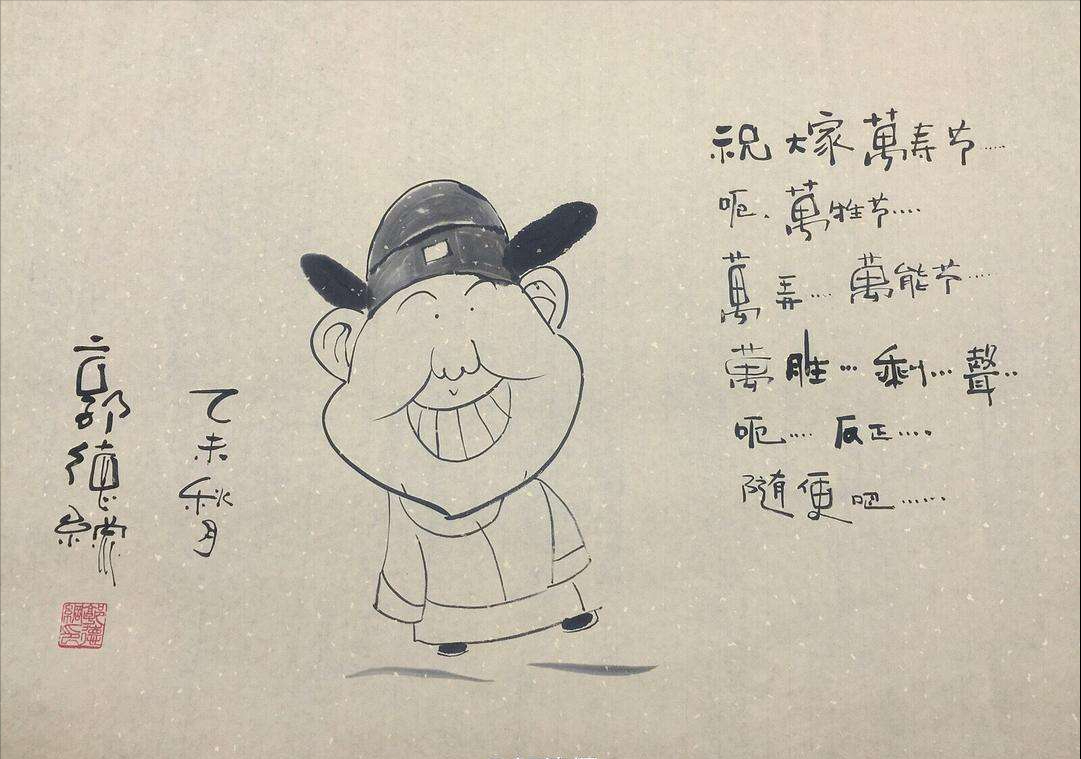 祝大家萬寿节……
呃、萬牲节……
萬弄…… 萬能节……
萬胜… 剩… 聲…
呃…… 反正……
随便吧……
乙未秋月
郭德綱